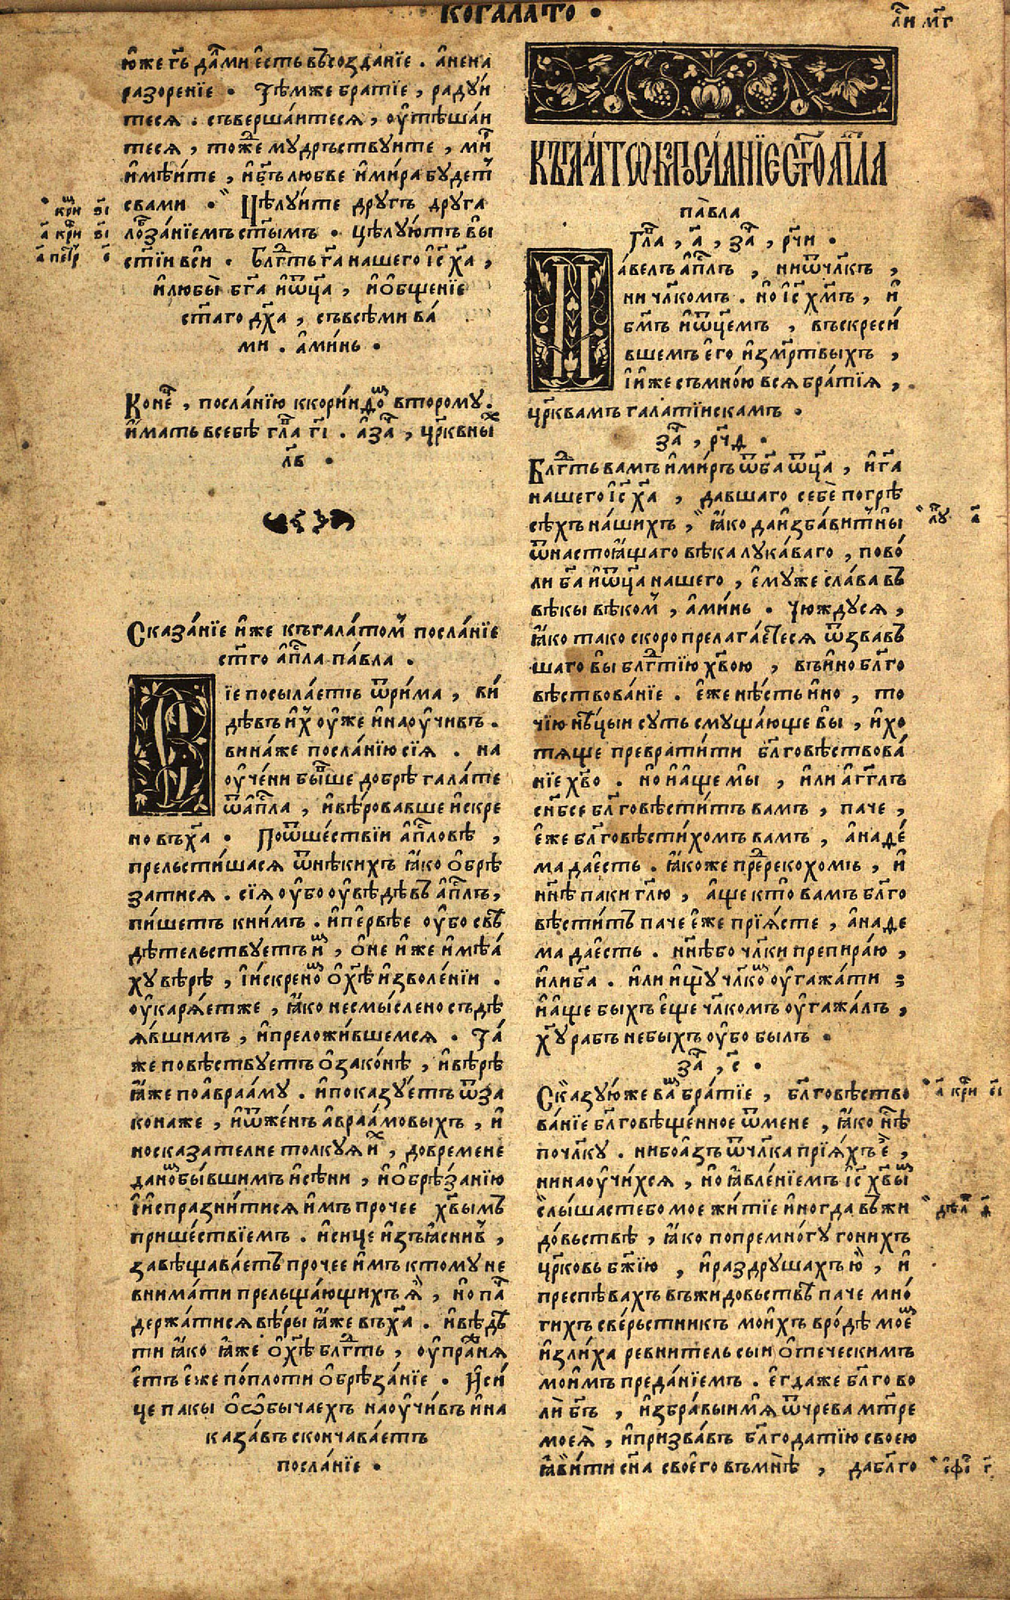 КОГАЛАТО .
юже гь да ми есть въсозданїе . анена
разоренїе . Тѣмже братїе , радуи
теся . съвершаитеся , оутѣшаи
теся , тоже мудрьствуите , ми
имѣите , ибг҃ъ любве имира будет
свами . Цѣлуите другъ друга
лобзанїемъ ст҃ымъ . цѣлуютъ вы
ст҃їи вси . Блг҃ть га҃ нашего іс҃ ха҃ ,
илюбы бг҃а иѿц҃а , иобщенїе
ст҃аго дх҃а , съвсѣми ва
ми . аминь .
Коне҇ , посланїю ккориндо второму .
имать всебѣ гл҃а гі . аза҇ , цр҃квны
лв .
Сказанїе иже къгалатом посланїе
ст҃го ап҃ла павла .
Сїе посылаетъ ѿрима , ви
дѣвъ их оуже инаоучивъ .
вина же посланїю сїя . на
оучени бывше добрѣ галате
ѿап҃ла , ивѣровавше искре
но въха҃ . Поѿшествїи ап҃ловѣ ,
прельстишася ѿнѣкихъ ꙗко обрѣ
затися . сїя оубо оувѣдѣвъ ап҃лъ ,
пишетъ книмъ . ипервѣе оубо свѣ
дѣтельствуетъ и , оне иже имѣа
ху вѣрѣ , іискрено охѣ изволенїи .
оукаряетже , ꙗко несмыслено съдѣ
явшимъ , ипреложившемся . Та
же повѣствуетъ озаконѣ , ивѣрѣ
ꙗже поаврааму . ипоказуетъ ѿза
кона же , иѿженъ авраамовыхъ , и
носказателне толкуя и , добремене
дано бывшимъ исѣни , иобрѣзанїю
іиспразнитися имъ прочее хв҃ымъ
пришествїемъ . исице изъꙗснив ,
завѣщаваетъ прочее имъ ктому не
внимати прельщающихъ я , но па
держатися вѣры ꙗже въха҃ . ивѣдѣ
ти ꙗко ꙗже охѣ блг҃ть , оупраня
етъ еже поплоти обрѣзанїе . Иси
це пакы оѻбычаехъ наоучивъ ина
казавъ скончаваетъ
посланїе .
КЪГАЛАТѠМЪ ПОСЛАНЇЕ СТ҃ГО АП҃ЛА
павла
Гл҃а , а҃ , за҇ , рч҃и .
Павелъ ап҃лъ , ниѿчл҃къ ,
ни чл҃комъ . но іс҃ хм҃ъ , и
бм҃ъ иѿц҃емъ , въскреси
вшемъ его измр҃твыхъ ,
ииже съмною вся братїя ,
цр҃квамъ галатїискамъ .
за҇ , рч҃д .
Блг҃ть вамъ имиръ ѿба҃ ѿц҃а , ига҃
нашего іс҃ ха҃ , давшаго себѐ погрѣ
сѣхъ нашихъ , ꙗко да избавитъ ны
ѿнастоꙗщаго вѣка лукаваго , пово
ли ба҃ иѿц҃а нашего , емуже слава въ
вѣкы вѣком , аминь . Чюждуся ,
ꙗко тако скоро прелагаетеся ѿзвавъ
шаго вы блг҃тїю хв҃ою , въино блг҃о
вѣствованїе . еже нѣсть ино , то
чїю нѣцыи суть смущающе вы , ихо
тяще превратити блг҃овѣствова
нїе хв҃о . но иаще мы , или агг҃лъ
снб҃се блг҃овѣститъ вамъ , паче ,
еже блг҃овѣстихомъ вамъ , анаде
ма да есть . ꙗкоже пререкохомъ , и
нн҃ѣ паки гл҃ю , аще кто вамъ блг҃о
вѣститъ паче еже прїясте , анаде
ма да есть . нн҃ѣбо чл҃ки препираю ,
илиба҃ . или ищу чл҃ко оугажати ;
иаще быхъ еще чл҃комъ оугажалъ ,
ху҃ рабъ небыхъ оубо былъ .
за҇ , с҃ .
Сказую же ва братїе , блг҃овѣство
ванїе блг҃овѣщенное ѿмене , ꙗко нѣ҇
почл҃ку . нибоазъ ѿчл҃ка прїяхъ е ,
нинаоучихся , но ꙗвленїемъ іс҃ хв҃ы
слышасте бо мое житїе иногда въжи
довьствѣ , ꙗко попремногу гонихъ
цр҃ковь бж҃їю , ираздрушахъ ю , и
преспѣвахъ въжидовьствѣ паче мно
гихъ сверьстникъ моихъ вродѣ мое
излиха ревнитель сыи отеческимъ
моимъ преданїемъ . егда же блг҃о во
ли бг҃ъ , избравыи мя ѿчрева мт҃ре
моея , ипризвавъ блг҃одатїю своею
ꙗвити сн҃а своего въмнѣ , да блг҃о